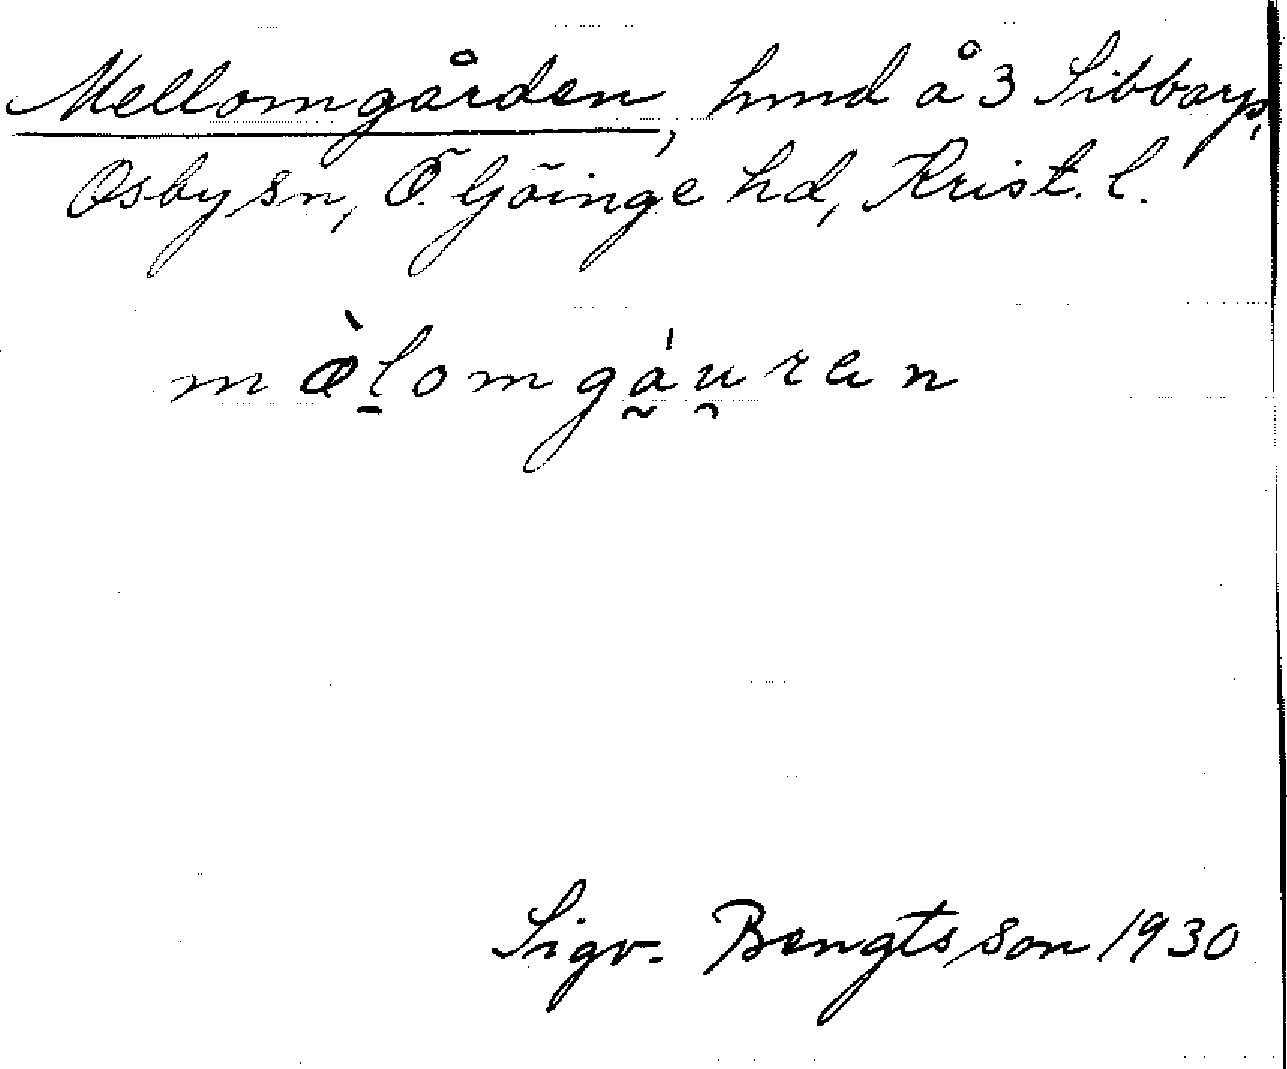 Mellomgården, hmd å 3 Sibbarp,
Osby sn, Ö. Göinge hd, Krist. l.
mø̀l̠omgá̰u̯ren
Sigv. Bengtsson 1930